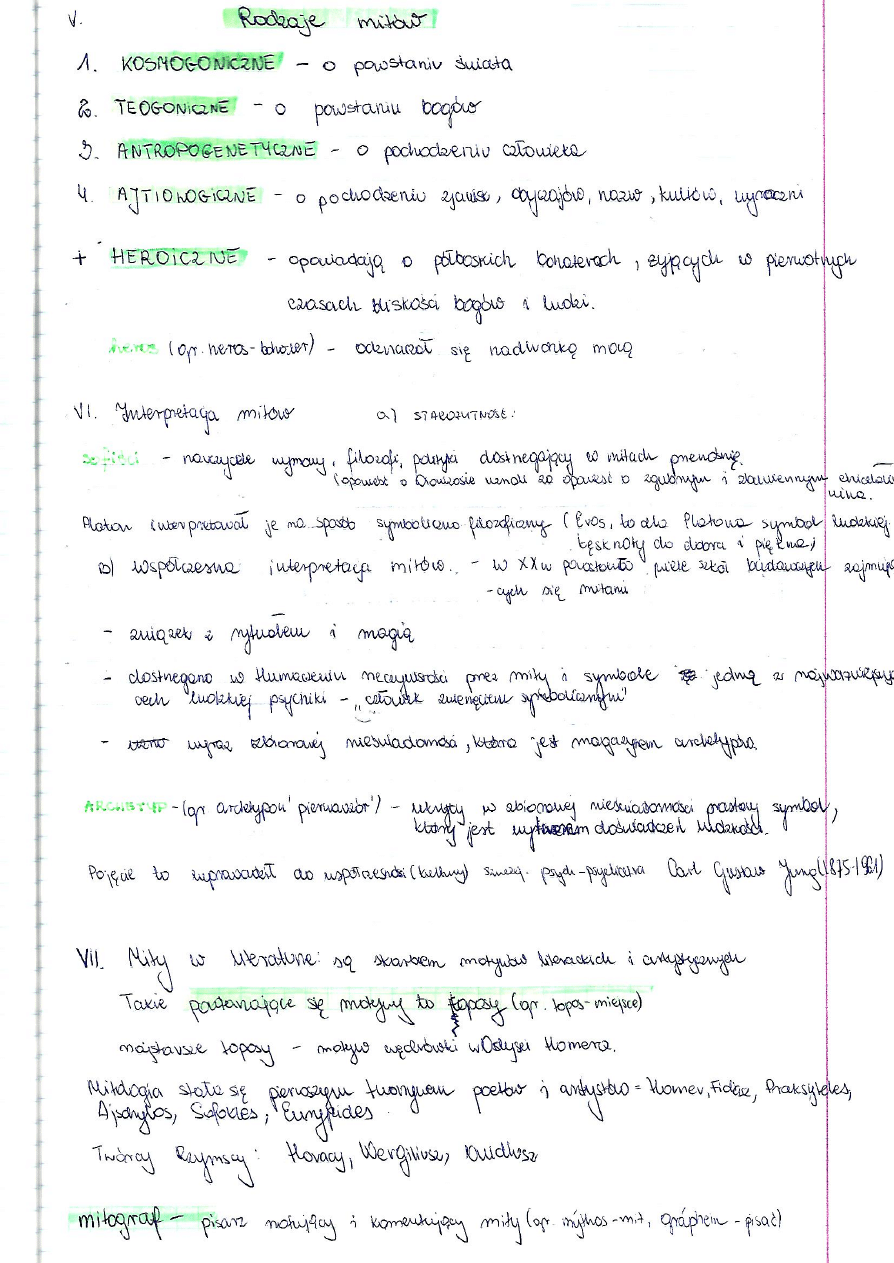 V. Rodzaje mitów
1. KOSMOGONICZNE – o powstaniu świata
2. TEOGONICZNE – o powstaniu bogów
3. ANTROPOGENETYCZNE – o pochodzeniu człowieka
4. AJTIOLOGICZNE – o pochodzeniu zjawisk, obyczajów, nazw, kultów, wyroczni
+ HEROICZNE – opowiadają o półboskich bohaterach, żyjących w pierwotnych
czasach bliskości bogów i ludzi.
heros (gr. heros-bohater) – odznaczał się nadludzką mocą
VI. Interpretacja mitów a) STAROŻYTNOŚĆ:
sofiści – nauczyciele wymowy, filozofi, polityki dostrzegający w mitach
(opowieść o Dionizosie uznali za opowieść o zgubnym i zbawiennym
wina.
Platon interpretował je na sposób symboliczno filozoficzny (Eros, to dla Platona symbol ludzkiej
tęsknoty do dobra i piękna)
b) współczesna interpretacja mitów. – w XXw powstało wiele szkół badawczych zajmują
-cych się mitami
– związek z rytuałem i magią
– dostrzegano w tłumaczeniu rzeczywistości przez mity i symbole jedną z najważniejszych
cech ludzkiej psychiki – „człowiek zwierzęciem symbolicznym"
– wyraz zbiorowej nieświadomości, która jest magazynem archetypów.
ARCHETYP – (gr archetypon 'pierwowzór') – ukryty w zbiorowej nieświadomości prastary symbol,
który jest wytworem doświadczeń ludzkości.
Pojęcie to wprowadził do współczesności (kultury) szwajc. psych-psychiatra Carl Gustaw Jung (1875-1961)
VII. Mity w literaturze: są skarbem motywów literackich i artystycznych
Takie powtarzające się motywy to toposy (gr. topos-miejsce)
najstarsze toposy – motyw wędrówki w Odysei Homera.
Mitologia stała się pierwszym tworzywem poetów i artystów = Homer, Fidiasz, Praksyteles,
Ajschylos, Sofokles, Eurypides.
Twórcy Rzymscy: Horacy, Wergiliusz, Owidiusz
mitograf – pisarz notujący i komentujący mity (gr. mýthos-mit, gráphein-pisać)